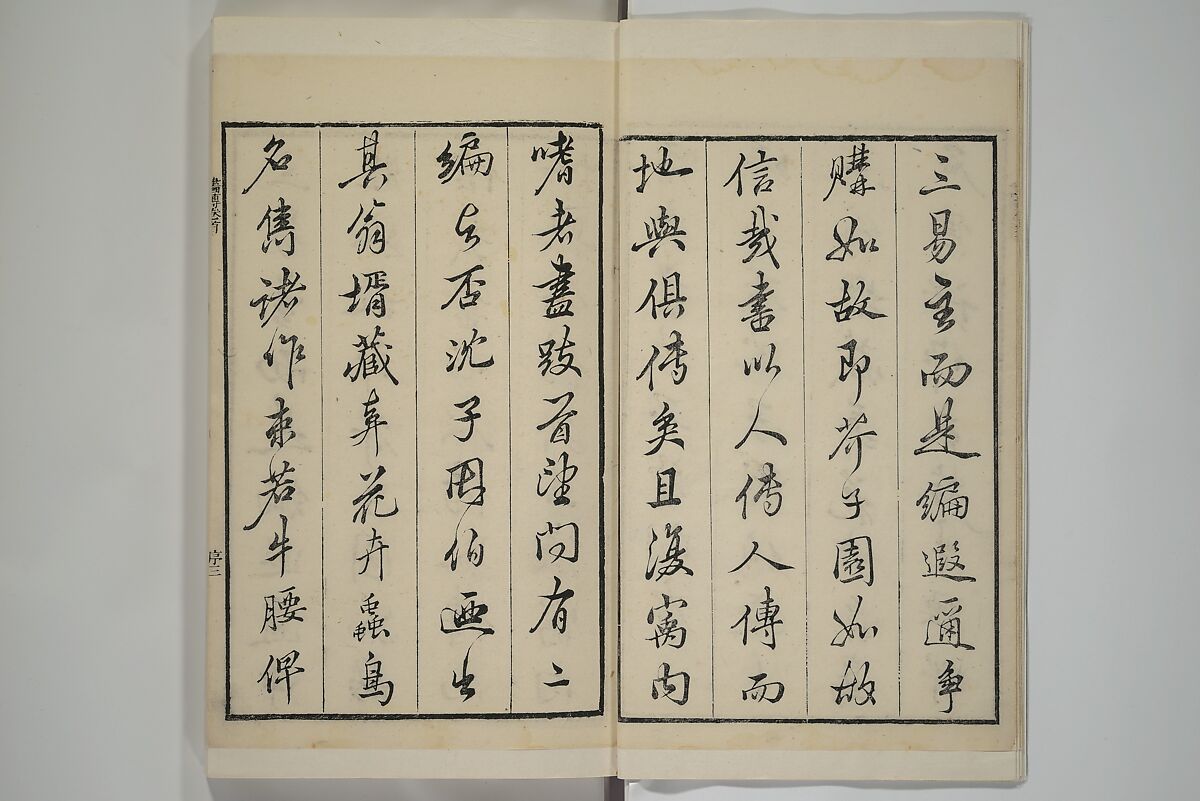 三易主而是編遐邇爭
購如故即芥子園如故
信哉書以人傳人傳而
地與俱傳矣且復寰内
嗜者盡跂首望問有二
編與否沈子因伯迺出
其翁壻藏弆花卉蟲鳥
名雋諸作束若牛腰俾
序三